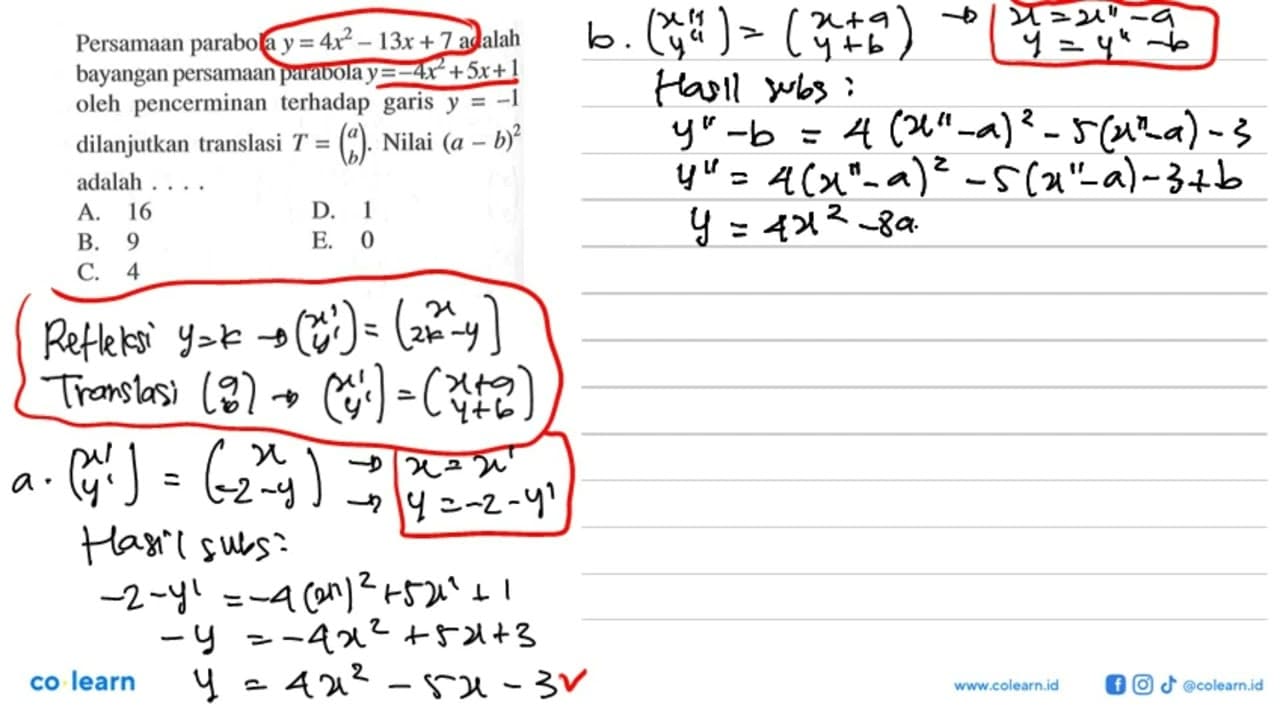 Persamaan parabola y = 4x² – 13x + 7 adalah
bayangan persamaan parabola y = –4x² + 5x + 1
oleh pencerminan terhadap garis y = –1
dilanjutkan translasi T = (a b). Nilai (a – b)²
adalah . . . .
A. 16
B. 9
C. 4
D. 1
E. 0
Refleksi y=k → (x' y') = (x 2k-y)
Translasi (a b) → (x' y') = (x+a y+b)
a. (x' y') = (x -2-y) → x = x'
→ y = -2-y'
Hasil subs:
-2-y' = -4(x')² + 5x' + 1
-y = -4x² + 5x + 3
y = 4x² - 5x - 3 ✓
b. (x" y") = (x+a y+b) → x = x" - a
y = y" - b
Hasil subs :
y" - b = 4(x"-a)² - 5(x"-a) - 3
y" = 4(x"-a)² - 5(x"-a) - 3 + b
y = 4x² - 8a.
co learn
www.colearn.id
@colearn.id